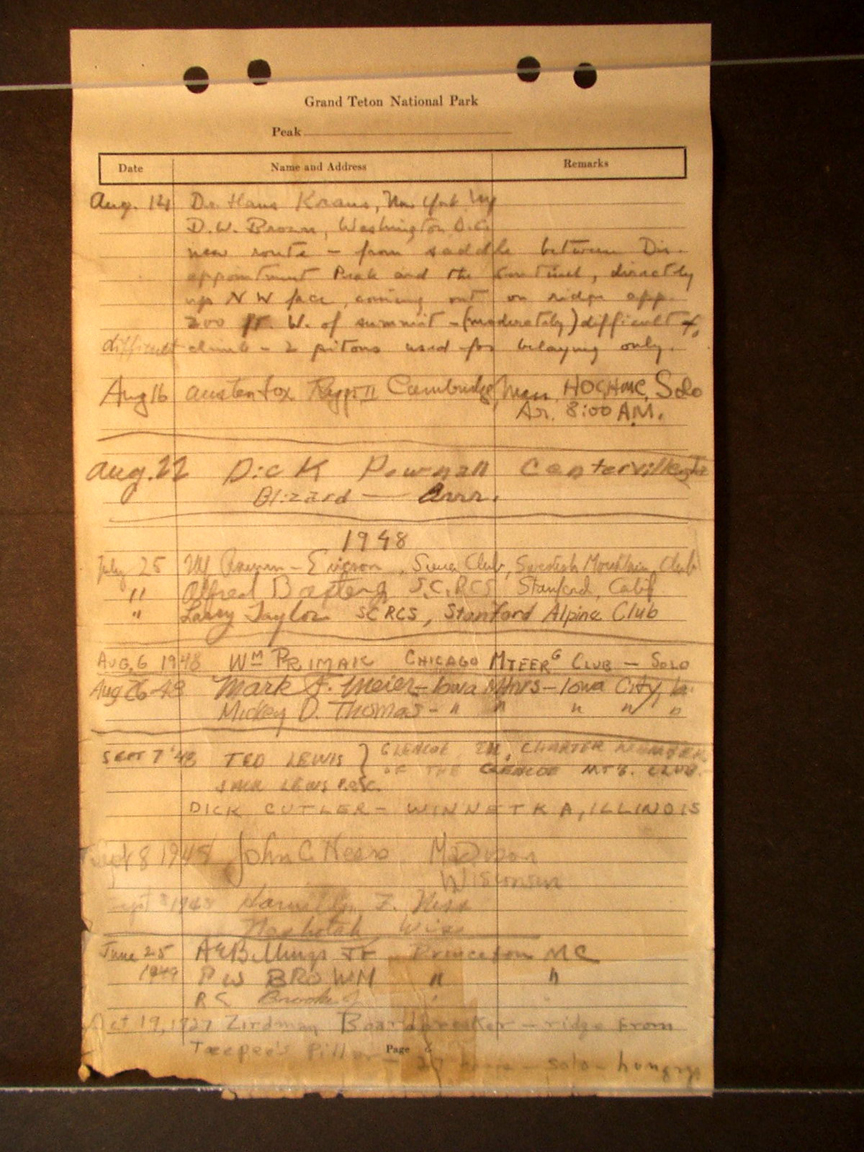 Grand Teton National Park
Peak
Date Name and Address Remarks
Aug. 14 Dr. Hans Kraus, New York Ny
D.W. Brown, Washington D.C.
new route - from saddle between Dis-
appointment Peak and the Sentinel, directly
up N W face, coming out on ridge app.
200 ft. W. of summit - (moderately) difficult
difficult climb - 2 pitons used for belaying only.
Aug 16 Austen Fox Riggs II Cambridge, Mass. HOCHMC, Solo
Ar. 8:00 A.M.
Aug. 22 Dick Pownall Centerville
Blizard — Brrr.
1948
July 25 Ulf Ericson, Sierra Club, Swedish Mountain Club
" Alfred S.C. RCS, Stanford, Calif
" Larry Taylor SCRCS, Stanford Alpine Club
AUG. 6 1948 Wm PRIMAK CHICAGO MTEERG CLUB - SOLO
Aug 26-48 Mark F. Meier - Iowa Mtnrs - Iowa City, Ia.
Mickey D. Thomas - " " " " "
SEPT 7 '48 TED LEWIS } GLENCOE ILL, CHARTER MEMBER
JACK LEWIS OF THE GLENCOE MT'G. CLUB.
DICK CUTLER - WINNETKA, ILLINOIS
Sept 8 1948 John C Hess Madison
Wisconsin
Sept 8 1948 F. Hess
Nashotah Wisc
June 25 A E Billings Jr Princeton MC
1949 P W BROWN " "
R C
Oct 19, 1927 Zirdman Boardbreaker - ridge from
Teepee's Pillar - 27 - solo - hungry
Page